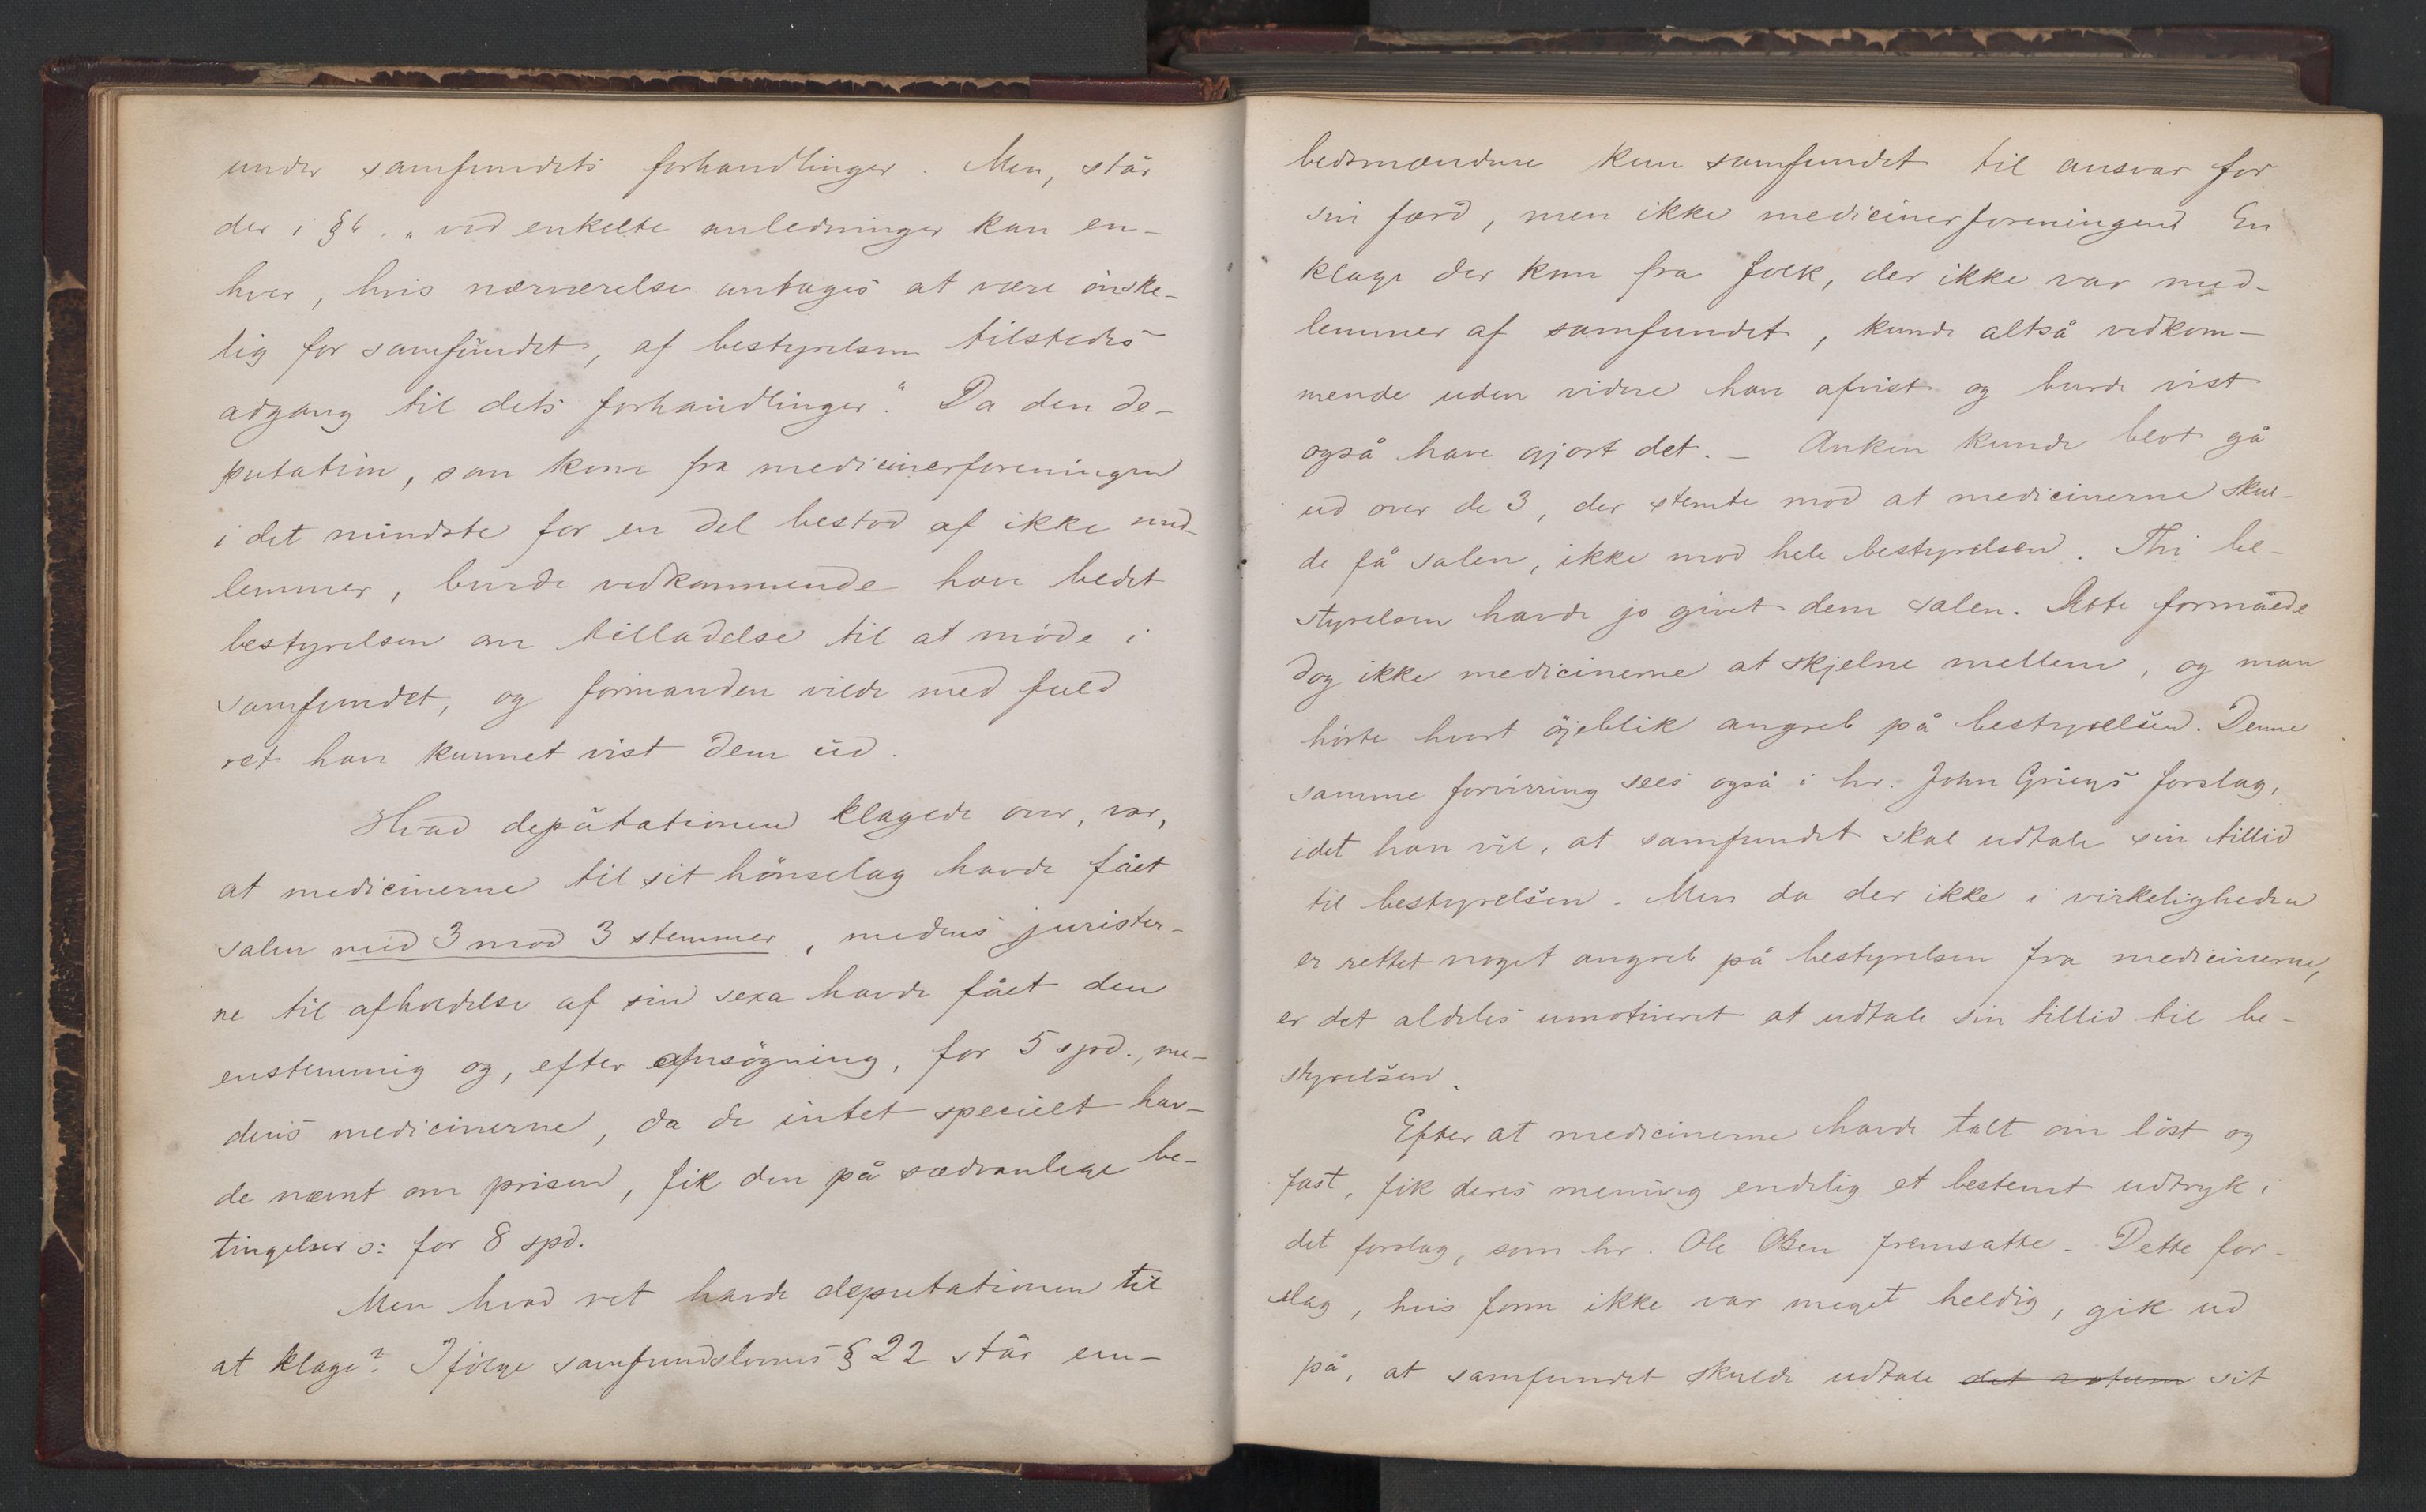 under samfundets forhandlinger. Men, står
der i § 6. „ved enkelte anledninger kan en-
hver, hvis nærværelse antages at være önske-
lig for samfundet, af bestyrelsen tilstedes
adgang til dets forhandlinger." Da den de-
putation, som kom fra medicinerforeningen
i det mindste for en del bestod af ikke med-
lemmer, burde vedkommende have bedet
bestyrelsen om tilladelse til at möde i
samfundet, og formanden vilde med fuld
ret have kunnet vist dem ud.
Hvad deputationen klagede over, var,
at medicinerne til sit hönselag havde fået
salen med 3 mod 3 stemmer, medens jurister-
ne til afholdelse af sin sexa havde fået den
enstemmig og, efter ansögning, for 5 spd., me-
dens medicinerne, da de intet specielt hav-
de nævnt om prisen, fik den på sædvanlige be-
tingelser ɔ: for 8 spd.
Men hvad ret havde deputationen til
at klage? Ifölge samfundslovens § 22 står em-
bedsmændene kun samfundet til ansvar for
sin færd, men ikke medicinerforeningen. En
klage der kom fra folk, der ikke var med-
lemmer af samfundet, kunde altså vedkom-
mende uden videre have afvist og burde vist
også have gjort det. – Anken kunde blot gå
ud over de 3, der stemte mod at medicinerne skul-
de få salen, ikke mod hele bestyrelsen. Thi be-
styrelsen havde jo givet dem salen. Dette formåede
dog ikke medicinerne at skjelne mellem, og man
hörte hvert öjeblik angreb på bestyrelsen. Denne
samme forvirring sees også i hr. John Griegs forslag,
idet han vil, at samfundet skal udtale sin tillid
til bestyrelsen. Men da der ikke i virkeligheden
er rettet noget angreb på bestyrelsen fra medicinerne,
er det aldeles umotiveret at udtale sin tillid til be-
styrelsen.
Efter at medicinerne havde talt om löst og
fast, fik deres mening endelig et bestemt udtryk i
det forslag, som hr. Ole Olsen fremsatte. Dette for-
slag, hvis form ikke var meget heldig, gik ud
på, at samfundet skulde udtale det sit